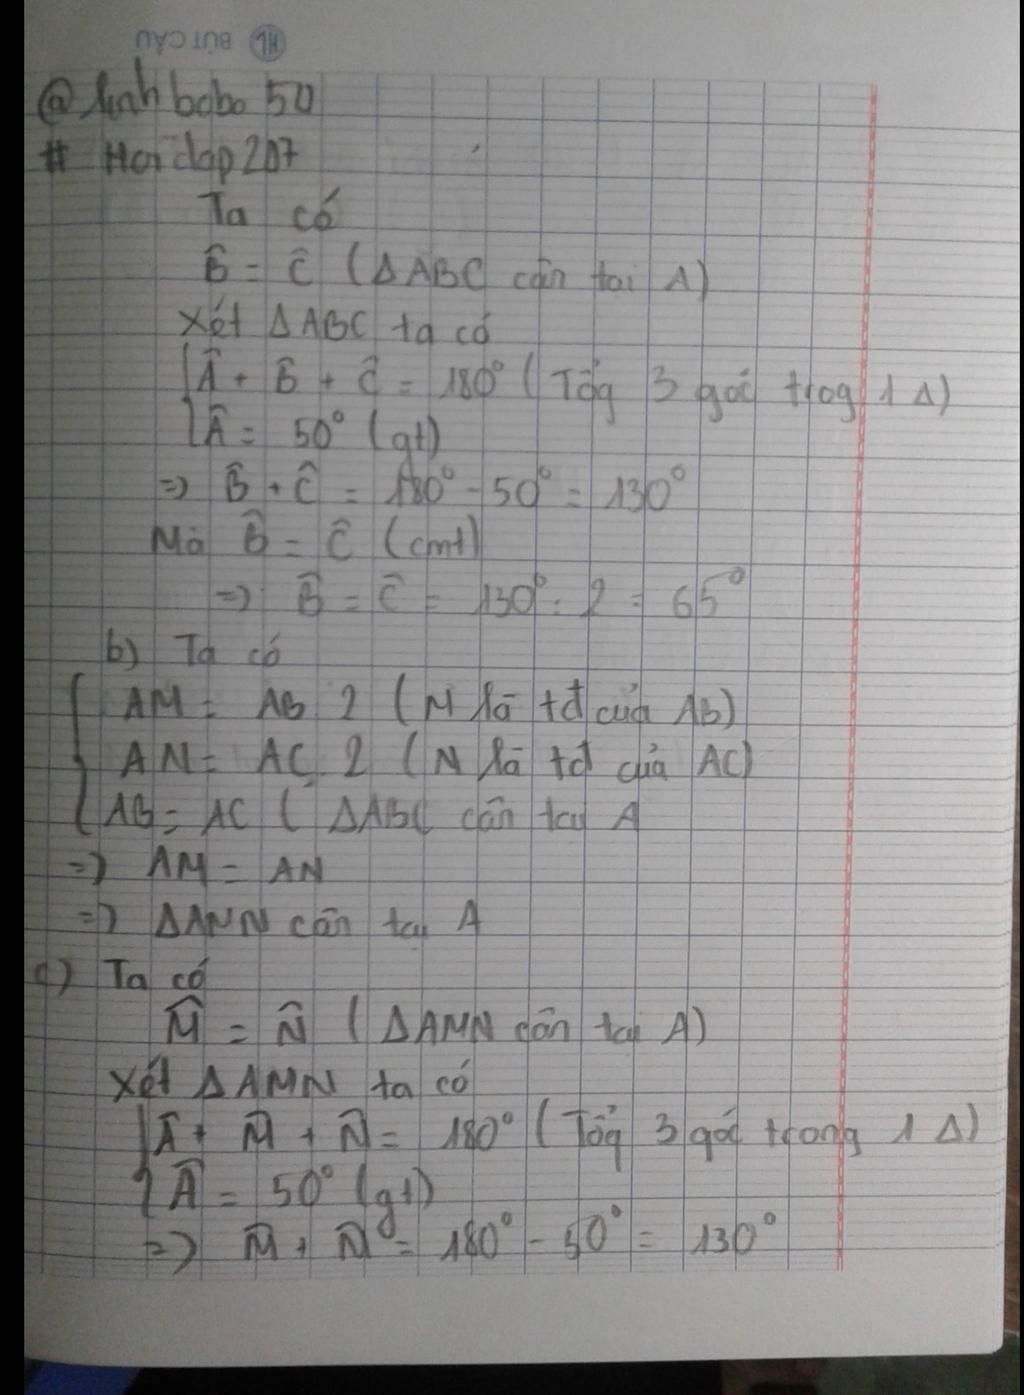 HL BÚT CẬU
@ linh bobo 50
# Hoidap207
Ta có
B̂ = Ĉ (ΔABC cân tại A)
Xét ΔABC ta có
Â + B̂ + Ĉ = 180° (Tổg 3 góc trog 1 Δ)
Â = 50° (gt)
=> B̂ + Ĉ = 180° - 50° = 130°
Mà B̂ = Ĉ (cmt)
=> B̂ = Ĉ = 130° : 2 = 65°
b) Ta có
AM = AB : 2 (M là tđ của AB)
AN = AC : 2 (N là tđ của AC)
AB = AC ( ΔABC cân tại A
=> AM = AN
=> ΔAMN cân tại A
c) Ta có
M̂ = N̂ (ΔAMN cân tại A)
Xét ΔAMN ta có
Â + M̂ + N̂ = 180° (Tổg 3 góc trong 1 Δ)
Â = 50° (gt)
=> M̂ + N̂ = 180° - 50° = 130°